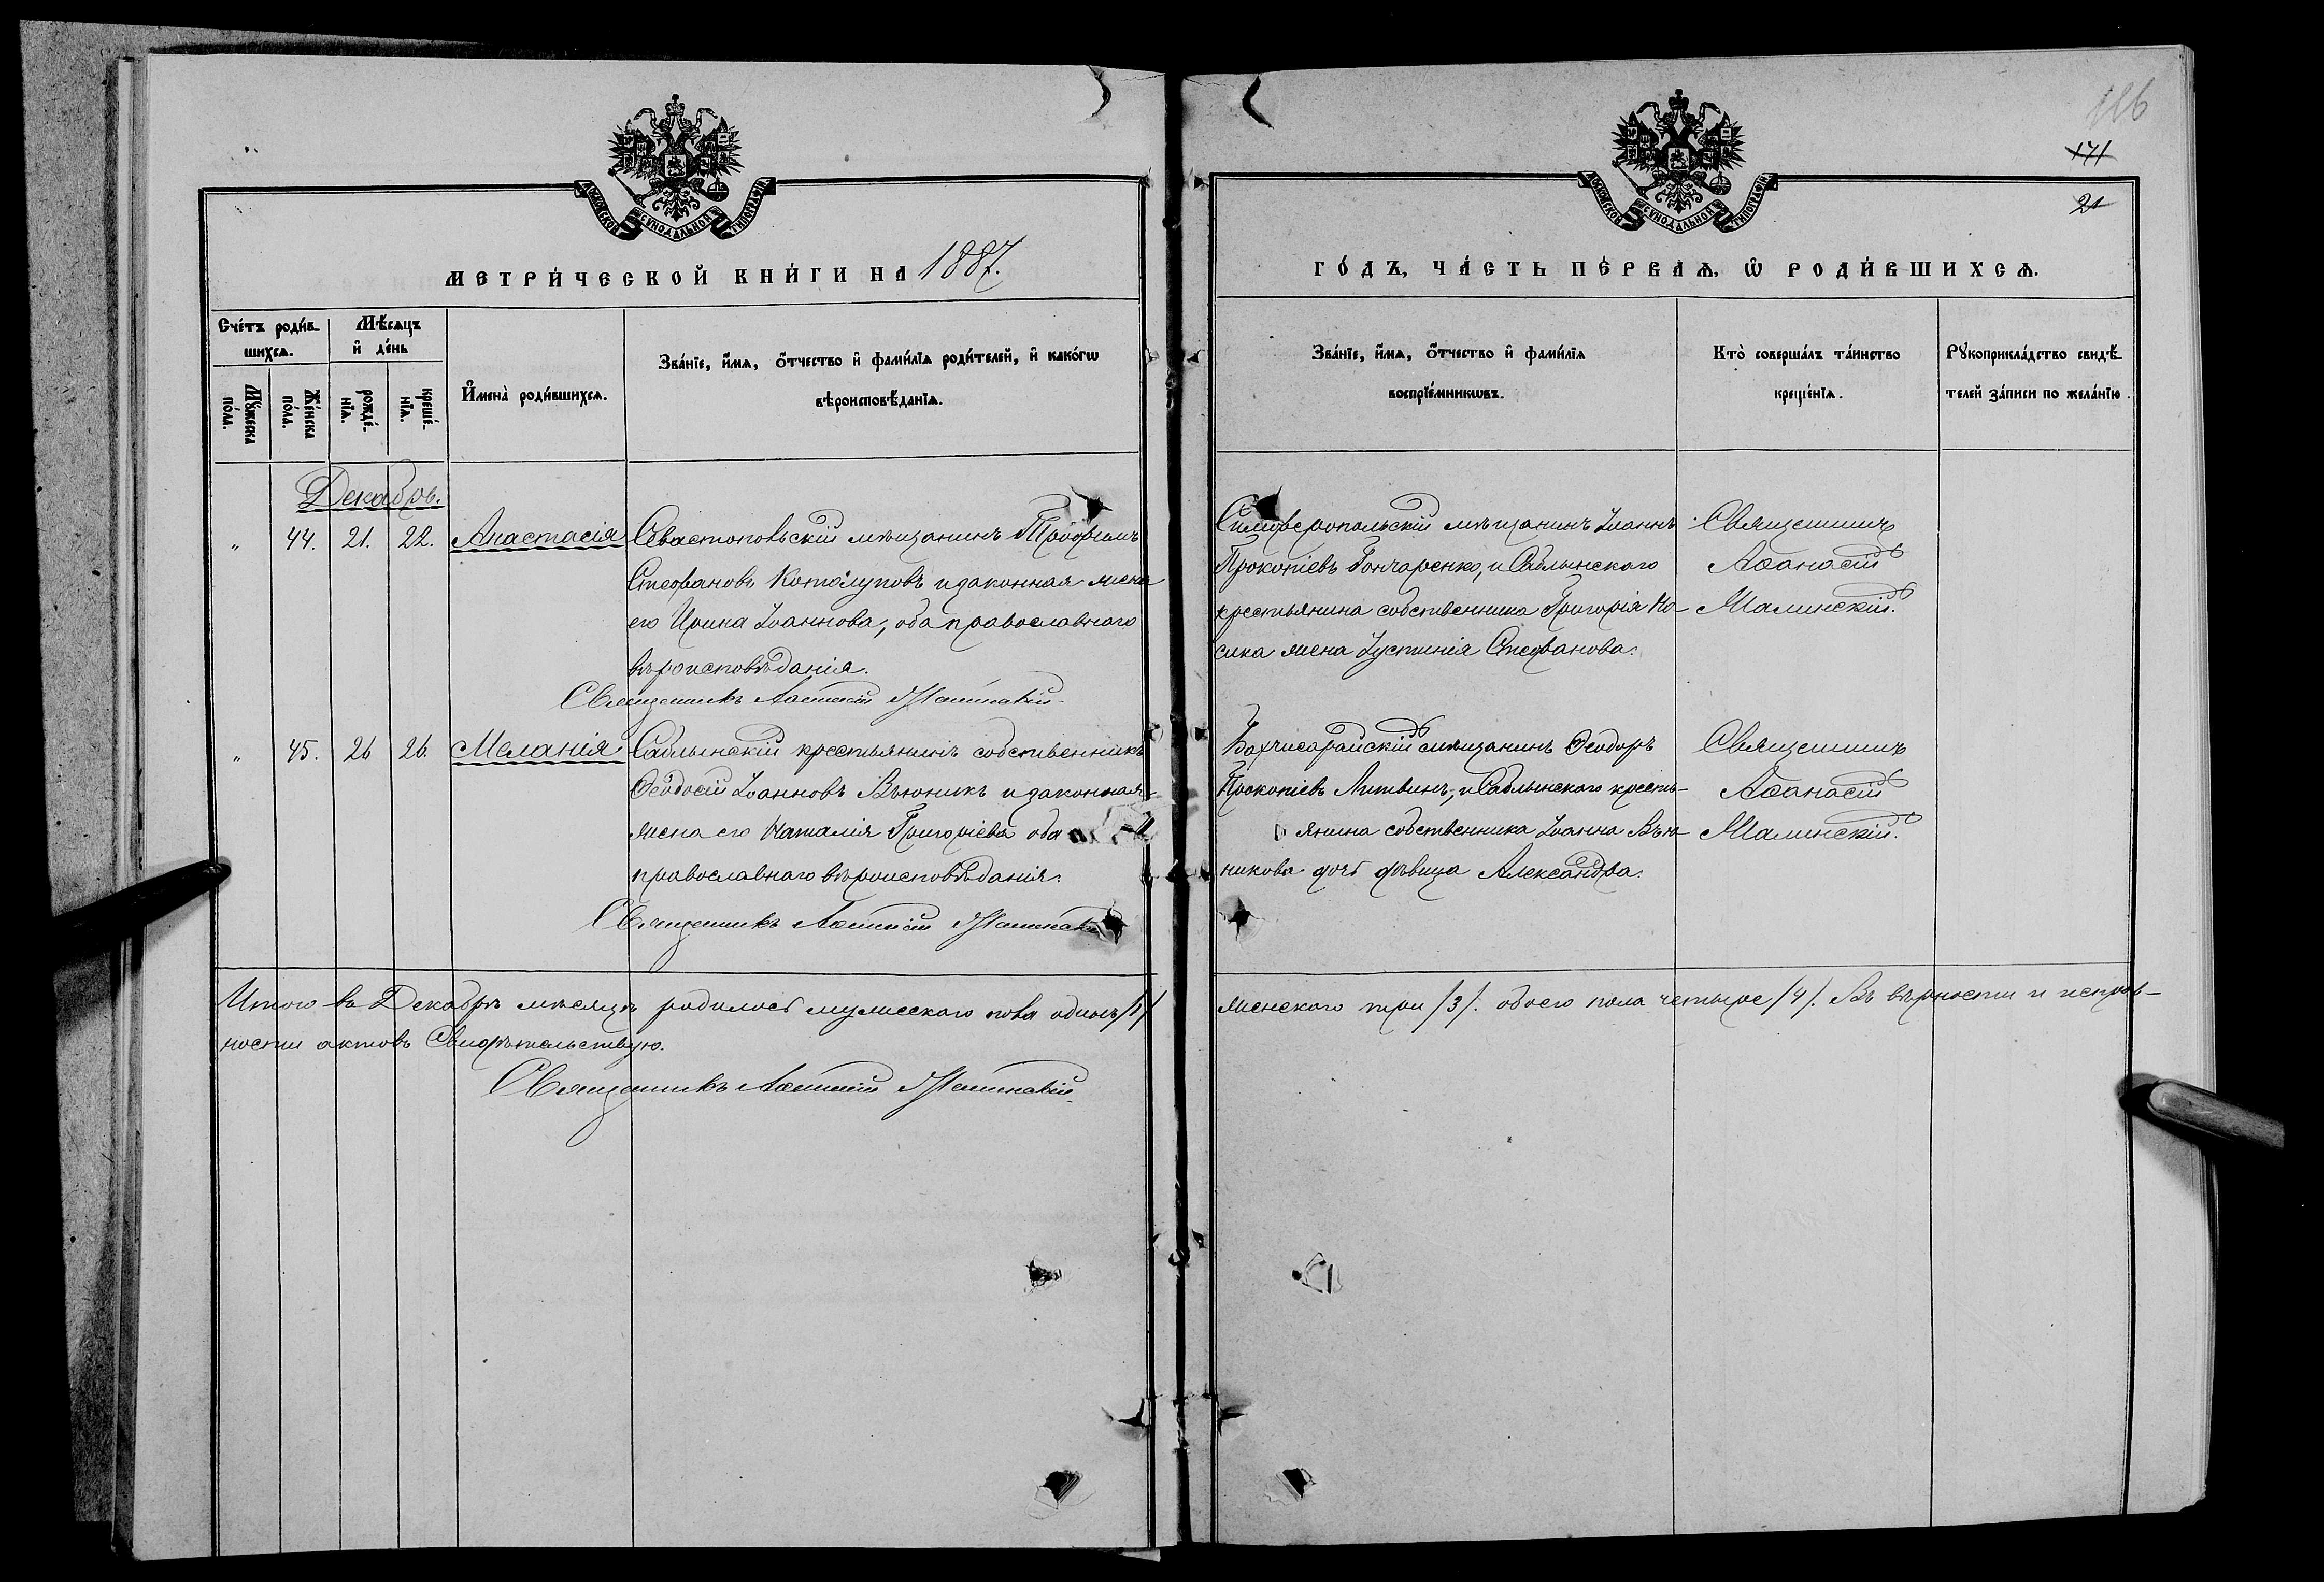 126
171
21
МОСКОВСКОЙ СѴНОДАЛЬНОЙ ТИПОГРАФІИ
МОСКОВСКОЙ СѴНОДАЛЬНОЙ ТИПОГРАФІИ
МЕТРИ́ЧЕСКОЙ КНИ́ГИ НА 1887.
ГО́ДЪ, ЧА́СТЬ ПЕ́РВАѦ, Ѡ҆ РОДИ́ВШИХСѦ.
Сче́тъ роди́в-
шихсѧ.
Мѣ́сѧцъ
и҆ де́нь
Мꙋ́жеска
по́ла.
Же́нска
по́ла.
рожде́-
нїѧ.
креще́-
нїѧ.
И҆мена̀ роди́вшихсѧ.
Зва́нїе, и҆́мѧ, ѻ҆́тчество и҆ фами́лїѧ роди́телей, и҆ како́гѡ
вѣроисповѣ́данїѧ.
Зва́нїе, и҆́мѧ, ѻ҆́тчество и҆ фами́лїѧ
воспрїе́мникѡвъ.
Кто̀ соверша́лъ та́инство
креще́нїѧ.
Рꙋкоприкла́дство свидѣ́-
телей за́писи по жела́нїю.
Декабрь.
" 44. 21. 22. Анастасія Севастопольскій мѣщанинъ Трофимъ
Стефановъ Котолуповъ и законная жена
его Ирина Іоаннова, оба православнаго
вѣроисповѣданія.
Священникъ Аѳанасій Малинскій
Симферопольскій мѣщанинъ Іоаннъ
Прокопіевъ Гончаренко, и Саблынского
крестьянина собственника Григорія Но-
сика жена Іустинія Стефанова.
Священникъ
Аѳанасій
Малинскій.
" 45. 26 26. Меланія Саблынскій крестьянинъ собственникъ
Ѳеодосій Іоанновъ Вьюникъ и законная
жена его Наталія Григоріева оба
православнаго вѣроисповѣданія.
Священникъ Аѳанасій Малинскій
Бахчисарайскій мѣщанинъ Ѳеодоръ
Прокопіевъ Литвинъ, и Саблынского кресть-
янина собственника Іоанна Вью-
никова дочь дѣвица Александра.
Священникъ
Аѳанасій
Малинскій.
Итого въ Декабрѣ мѣсяцѣ родилось мужескаго пола одинъ /1/
женскаго три /3/. обоего пола четыре /4/. Въ вѣрности и исправ-
ности актовъ Свидѣтельствую.
Священникъ Аѳанасій Малинскій